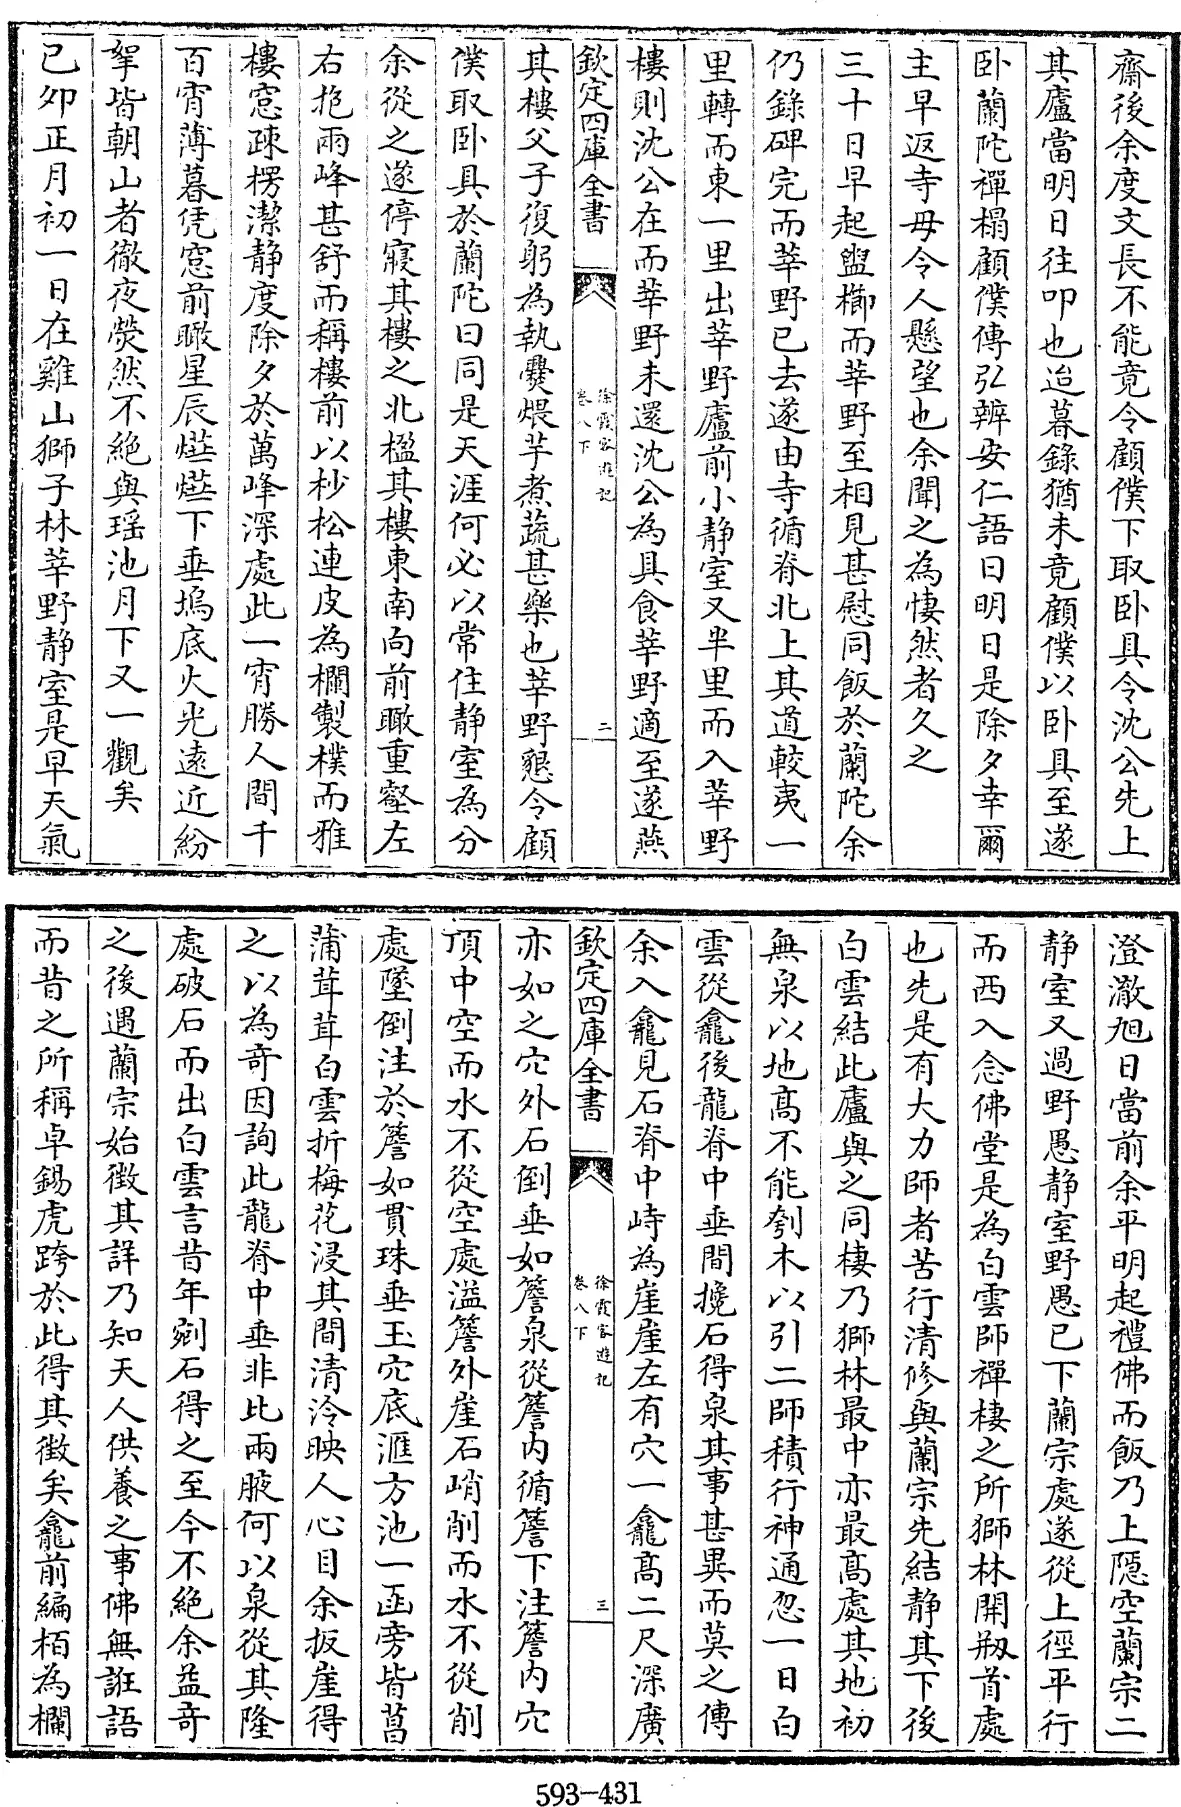 齋後余度文長不能竟令顧僕下取卧具令沈公先上
其廬當明日往叩也迨暮錄猶未竟顧僕以卧具至遂
卧蘭陀禪榻顧僕傳弘辨安仁語曰明日是除夕幸爾
主早返寺毋令人懸望也余聞之為悽然者久之
三十日早起盥櫛而莘野至相見甚慰同飯於蘭陀余
仍錄碑完而莘野已去遂由寺循脊北上其道較夷一
里轉而東一里出莘野廬前小静室又半里而入莘野
樓則沈公在而莘野未還沈公為具食莘野適至遂燕
欽定四庫全書
徐霞客遊記
卷八下
二
其樓父子復躬為執爨煨芋煮蔬甚樂也莘野懇令顧
僕取卧具於蘭陀曰同是天涯何必以常住静室為分
余從之遂停寢其樓之北楹其樓東南向前瞰重壑左
右抱兩峰甚舒而稱樓前以杪松連皮為欄製樸而雅
樓窓疎楞潔静度除夕於萬峰深處此一宵勝人間千
百宵薄暮凭窓前瞰星辰燁燁下垂塢底火光遠近紛
挐皆朝山者徹夜熒然不絶與瑶池月下又一觀矣
已卯正月初一日在雞山獅子林莘野静室是早天氣
澄澈旭日當前余平明起禮佛而飯乃上隠空蘭宗二
静室又過野愚静室野愚已下蘭宗處遂從上徑平行
而西入念佛堂是為白雲師禪棲之所獅林開剏首處
也先是有大力師者苦行清修與蘭宗先結静其下後
白雲結此廬與之同棲乃獅林最中亦最髙處其地初
無泉以地髙不能刳木以引二師積行神通忽一日白
雲從龕後龍脊中垂間攙石得泉其事甚異而莫之傳
余入龕見石脊中峙為崖崖左有穴一龕髙二尺深廣
欽定四庫全書
徐霞客遊記
卷八下
三
亦如之穴外石倒垂如簷泉從簷内循簷下注簷内穴
頂中空而水不從空處溢簷外崖石峭削而水不從削
處墜倒注於簷如貫珠垂玉穴底滙方池一函旁皆菖
蒲茸茸白雲折梅花浸其間清泠映人心目余扳崖得
之以為竒因詢此龍脊中垂非比兩腋何以泉從其隆
處破石而出白雲言昔年剜石得之至今不絶余益竒
之後遇蘭宗始徴其詳乃知天人供養之事佛無誑語
而昔之所稱卓錫虎跨於此得其徴矣龕前編栢為欄
593-431